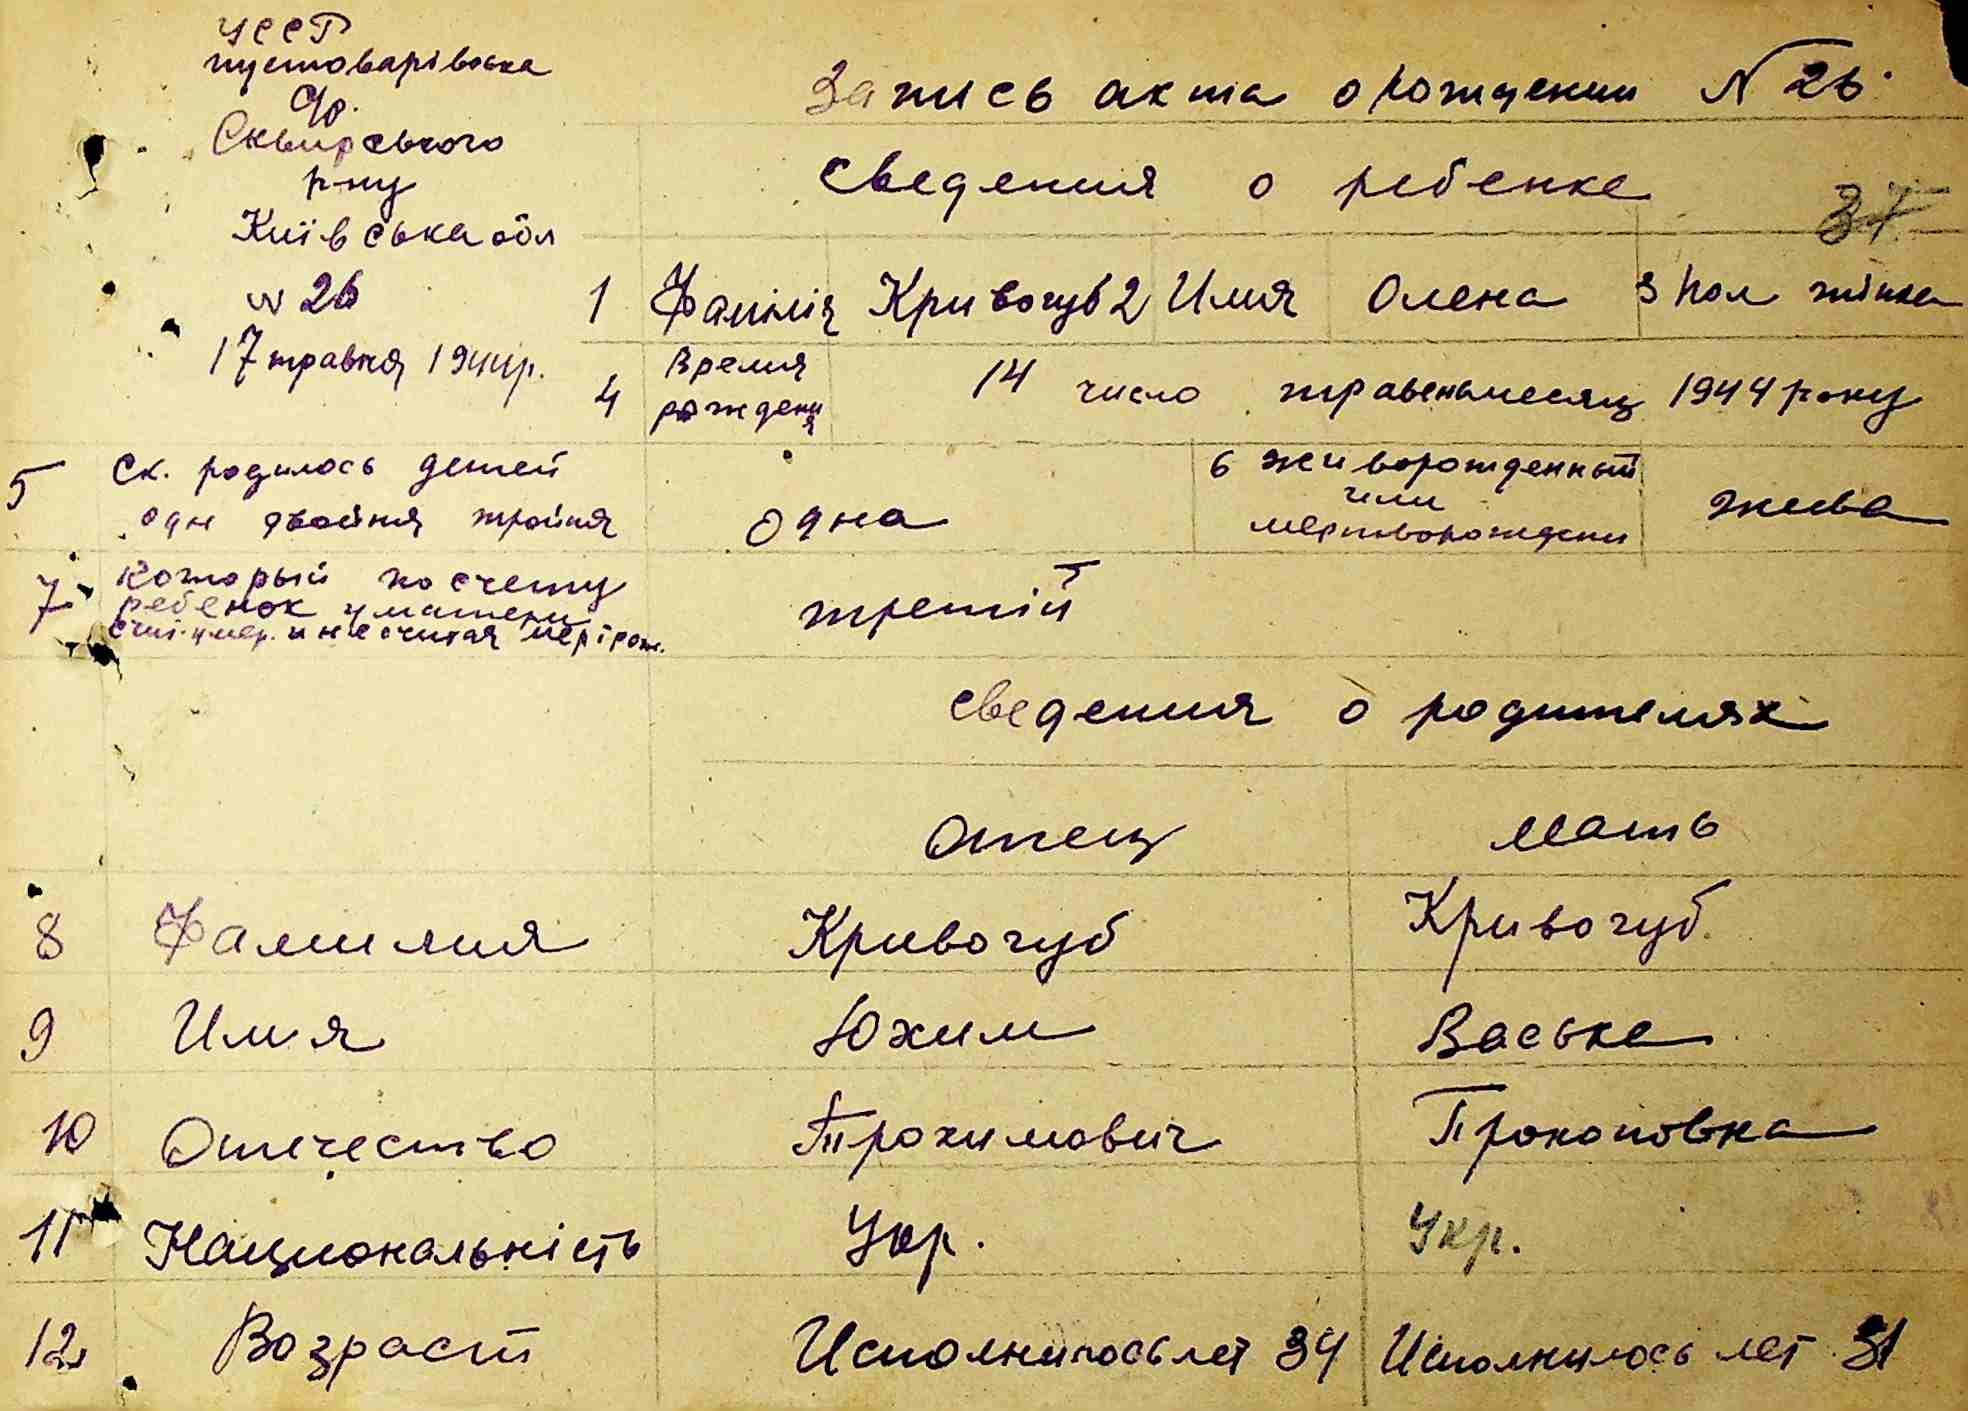 УССР
пустоварівська
с/р.
Сквирського
р-ну
Київська обл
N 26
17 травня 1944р.
Запись акта о рождении N 26.
Сведения о ребенке
37
1 Фамілія Кривогуб 2 Имя Олена 3 Пол жінка
4 Время рождения 14 число травень месяц 1944 року
5 Ск. родилось детей
одн двойня тройня
одна
6 живорожденный
или
мертворожден
жива
7 Который по счету
ребенок у матери
счит. умер. и не считая мертрож.
третій
Сведения о родителях
Отец Мать
8 Фамилия Кривогуб Кривогуб.
9 Имя Юхим Васька
10 Отчество Трохимович Прокоповна
11 Национальність Укр. Укр.
12 Возраст Исполнилось лет 34 Исполнилось лет 31